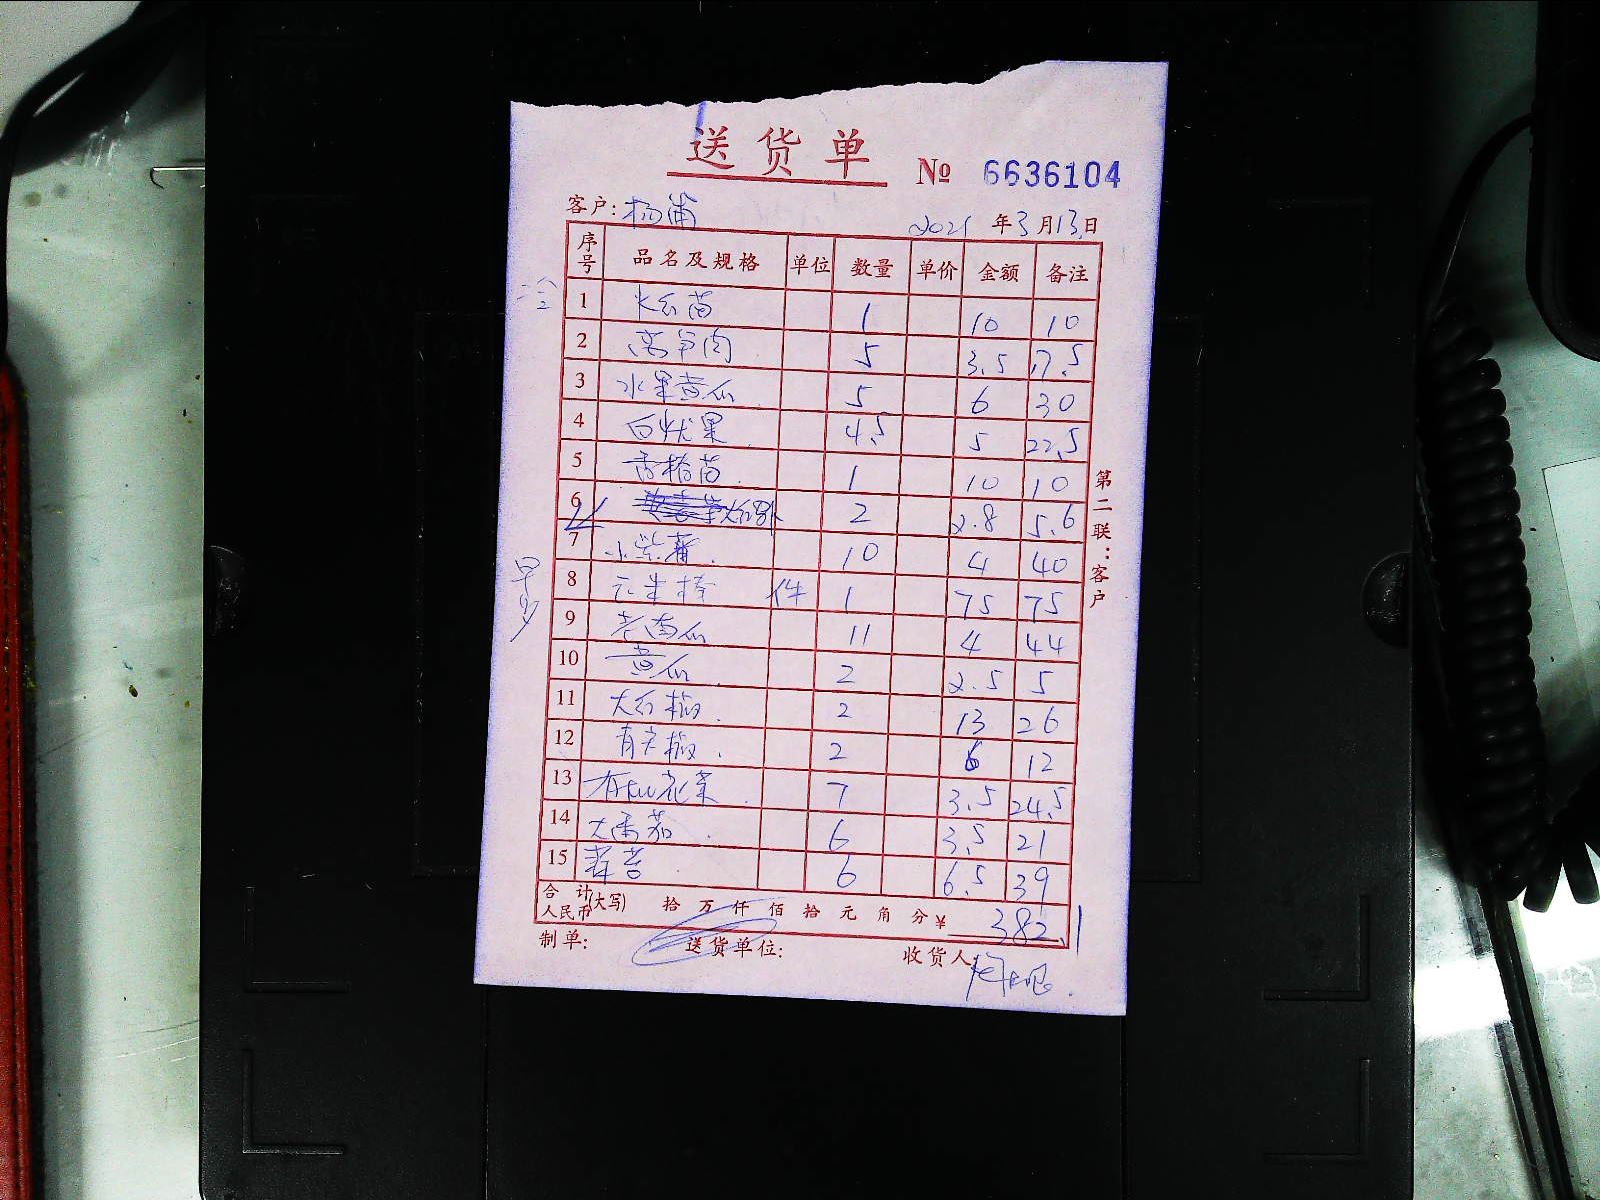 送货单 № 6636104
客户: 杨浦 2021 年 3 月 13 日
序号 品名及规格 单位 数量 单价 金额 备注
1 1 10 10
2 莴笋肉 5 3.5 17.5
3 水果黄瓜 5 6 30
4 4.5 5 22.5
5 1 10 10
6 2 2.8 5.6
7 小紫薯 10 4 40
8 件 1 75 75
9 老南瓜 11 4 44
10 黄瓜 2 2.5 5
11 大红椒 2 13 26
12 青尖椒 2 6 12
13 有机花菜 7 3.5 24.5
14 大番茄 6 3.5 21
15 6 6.5 39
合计 人民币 (大写) 拾 万 仟 佰 拾 元 角 分 ¥ 382.1
制单: 送货单位: 收货人
第二联:客户